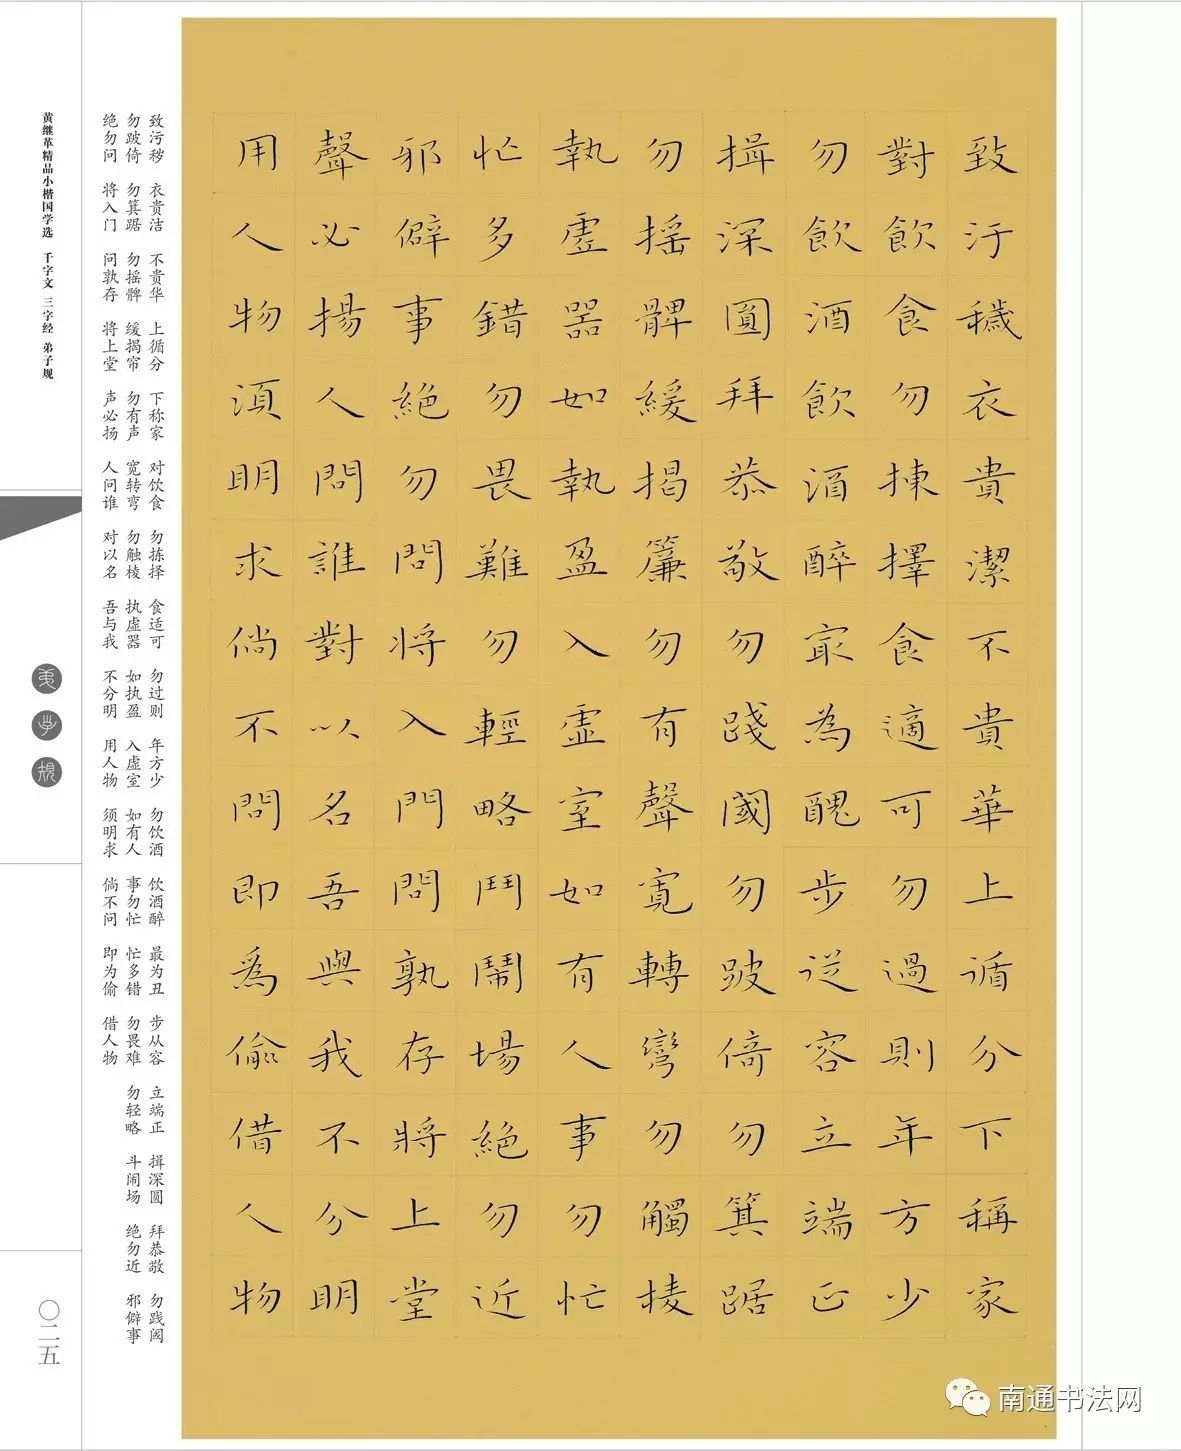 致汙穢衣貴潔不貴華上循分下稱家
對飲食勿揀擇食適可勿過則年方少
勿飲酒飲酒醉冣為醜步從容立端正
揖深圓拜恭敬勿踐閾勿跛倚勿箕踞
勿搖髀緩揭簾勿有聲寬轉彎勿觸棱
執虛器如執盈入虛室如有人事勿忙
忙多錯勿畏難勿輕略鬥鬧場絕勿近
邪僻事絕勿問將入門問孰存將上堂
聲必揚人問誰對以名吾與我不分明
用人物須明求倘不問即為偷借人物
致污秽 衣贵洁 不贵华 上循分 下称家 对饮食 勿拣择 食适可 勿过则 年方少 勿饮酒 饮酒醉 最为丑 步从容 立端正 揖深圆 拜恭敬 勿践阈
勿跛倚 勿箕踞 勿摇髀 缓揭帘 勿有声 宽转弯 勿触棱 执虚器 如执盈 入虚室 如有人 事勿忙 忙多错 勿畏难 勿轻略 斗闹场 绝勿近 邪僻事
绝勿问 将入门 问孰存 将上堂 声必扬 人问谁 对以名 吾与我 不分明 用人物 须明求 倘不问 即为偷 借人物
黄继革精品小楷国学选 千字文 三字经 弟子规
弟子規
〇二五
南通书法网